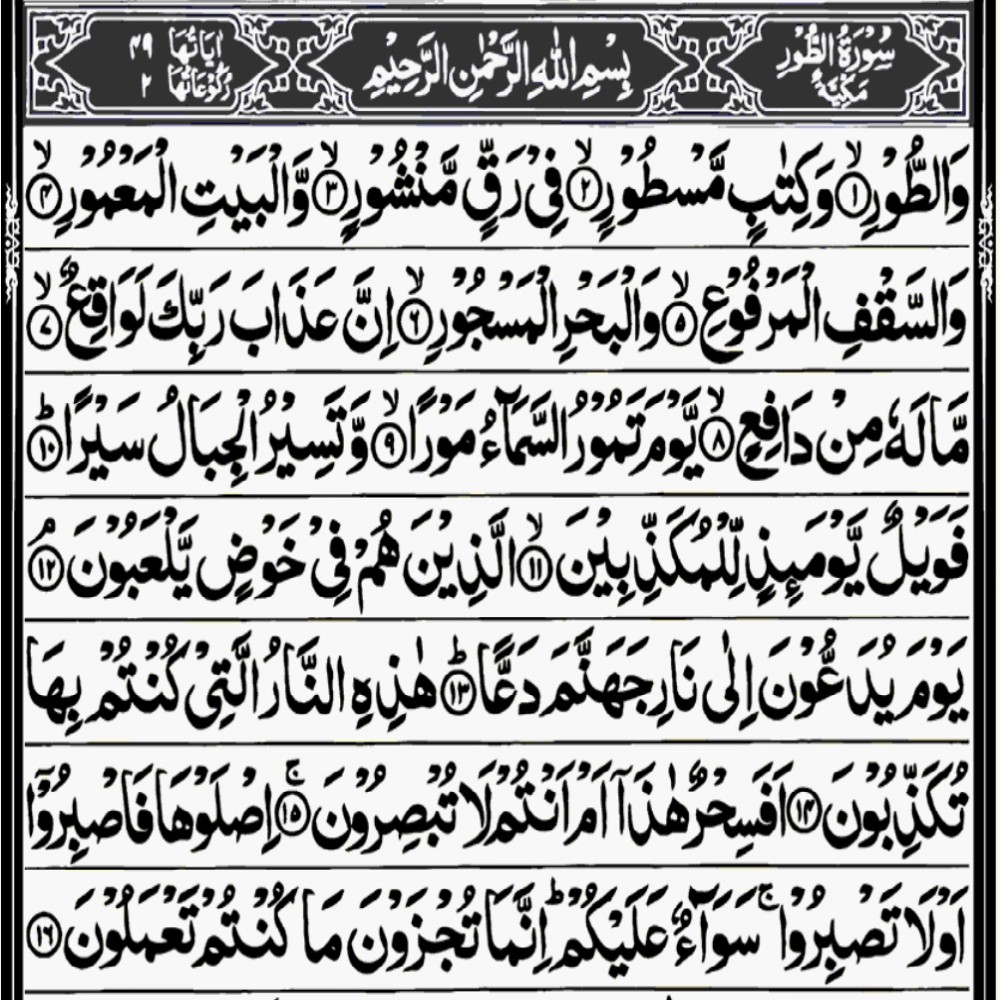 سُوْرَةُ الطُّوْرِ مَكِّيَّةٌ
بِسْمِ اللهِ الرَّحْمٰنِ الرَّحِيْمِ
اٰيَاتُهَا ۴۹
رُكُوْعَاتُهَا ۲
وَالطُّوْرِۙ‏﴿۱﴾ وَكِتٰبٍ مَّسْطُوْرٍۙ‏﴿۲﴾ فِىْ رَقٍّ مَّنْشُوْرٍۙ‏﴿۳﴾ وَّالْبَيْتِ الْمَعْمُوْرِۙ‏﴿۴﴾
وَالسَّقْفِ الْمَرْفُوْعِۙ‏﴿۵﴾ وَالْبَحْرِ الْمَسْجُوْرِۙ‏﴿۶﴾ اِنَّ عَذَابَ رَبِّكَ لَوَاقِعٌۙ‏﴿۷﴾
مَّا لَهٗ مِنْ دَافِعٍۙ‏﴿۸﴾ يَّوْمَ تَمُوْرُ السَّمَآءُ مَوْرًاۙ‏﴿۹﴾ وَّتَسِيْرُ الْجِبَالُ سَيْرًاؕ‏﴿۱۰﴾
فَوَيْلٌ يَّوْمَئِذٍ لِّلْمُكَذِّبِيْنَۙ‏﴿۱۱﴾ الَّذِيْنَ هُمْ فِىْ خَوْضٍ يَّلْعَبُوْنَۘ‏﴿۱۲﴾
يَوْمَ يُدَعُّوْنَ اِلٰى نَارِ جَهَنَّمَ دَعًّاؕ‏﴿۱۳﴾ هٰذِهِ النَّارُ الَّتِىْ كُنْتُمْ بِهَا
تُكَذِّبُوْنَ‏﴿۱۴﴾ اَفَسِحْرٌ هٰذَاۤ اَمْ اَنْتُمْ لَا تُبْصِرُوْنَۚ‏﴿۱۵﴾ اِصْلَوْهَا فَاصْبِرُوْۤا
اَوْ لَا تَصْبِرُوْاۚ سَوَآءٌ عَلَيْكُمْؕ اِنَّمَا تُجْزَوْنَ مَا كُنْتُمْ تَعْمَلُوْنَ‏﴿۱۶﴾